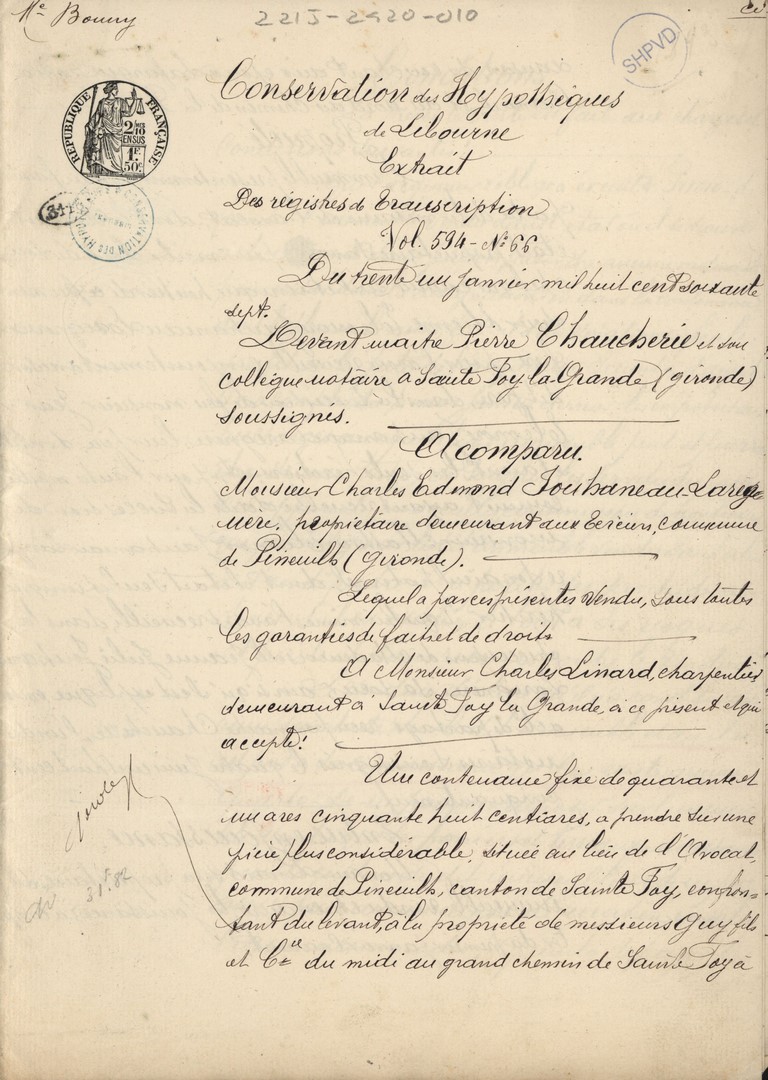 Me Boury
221J-2420-010
SHPVD
RÉPUBLIQUE FRANÇAISE
2/10 EN SUS
1F. 50c.
Conservation des Hypothèques
de Libourne
Extrait
Des régistres de Transcription
Vol. 594 - No 66
Du trente un janvier mil huit cent soixante
sept.
Devant maitre Pierre Chaucherie et son
collègue notaire a Sainte Foy la Grande (gironde)
soussignés.
A comparu.
Monsieur Charles Edmond Jouhaneau-Lareg-
nère, propriétaire demeurant aux Eerciers, commune
de Pineuilh (gironde).
Lequel a par ces présentes vendu, sous toutes
les garanties de faits et de droits
A Monsieur Charles Linard, charpentier
demeurant à Sainte Foy la Grande, à ce présent et qui
accepte:
Une contenance fixe de quarante et
un ares cinquante huit centiares, a prendre sur une
pièce plus considérable, située au lieu de l'Avocat,
commune de Pineuilh, canton de Sainte Foy, confron-
tant du levant, à la propriété de messieurs Guy fils
et Cie du midi au grand chemin de Sainte Foy à